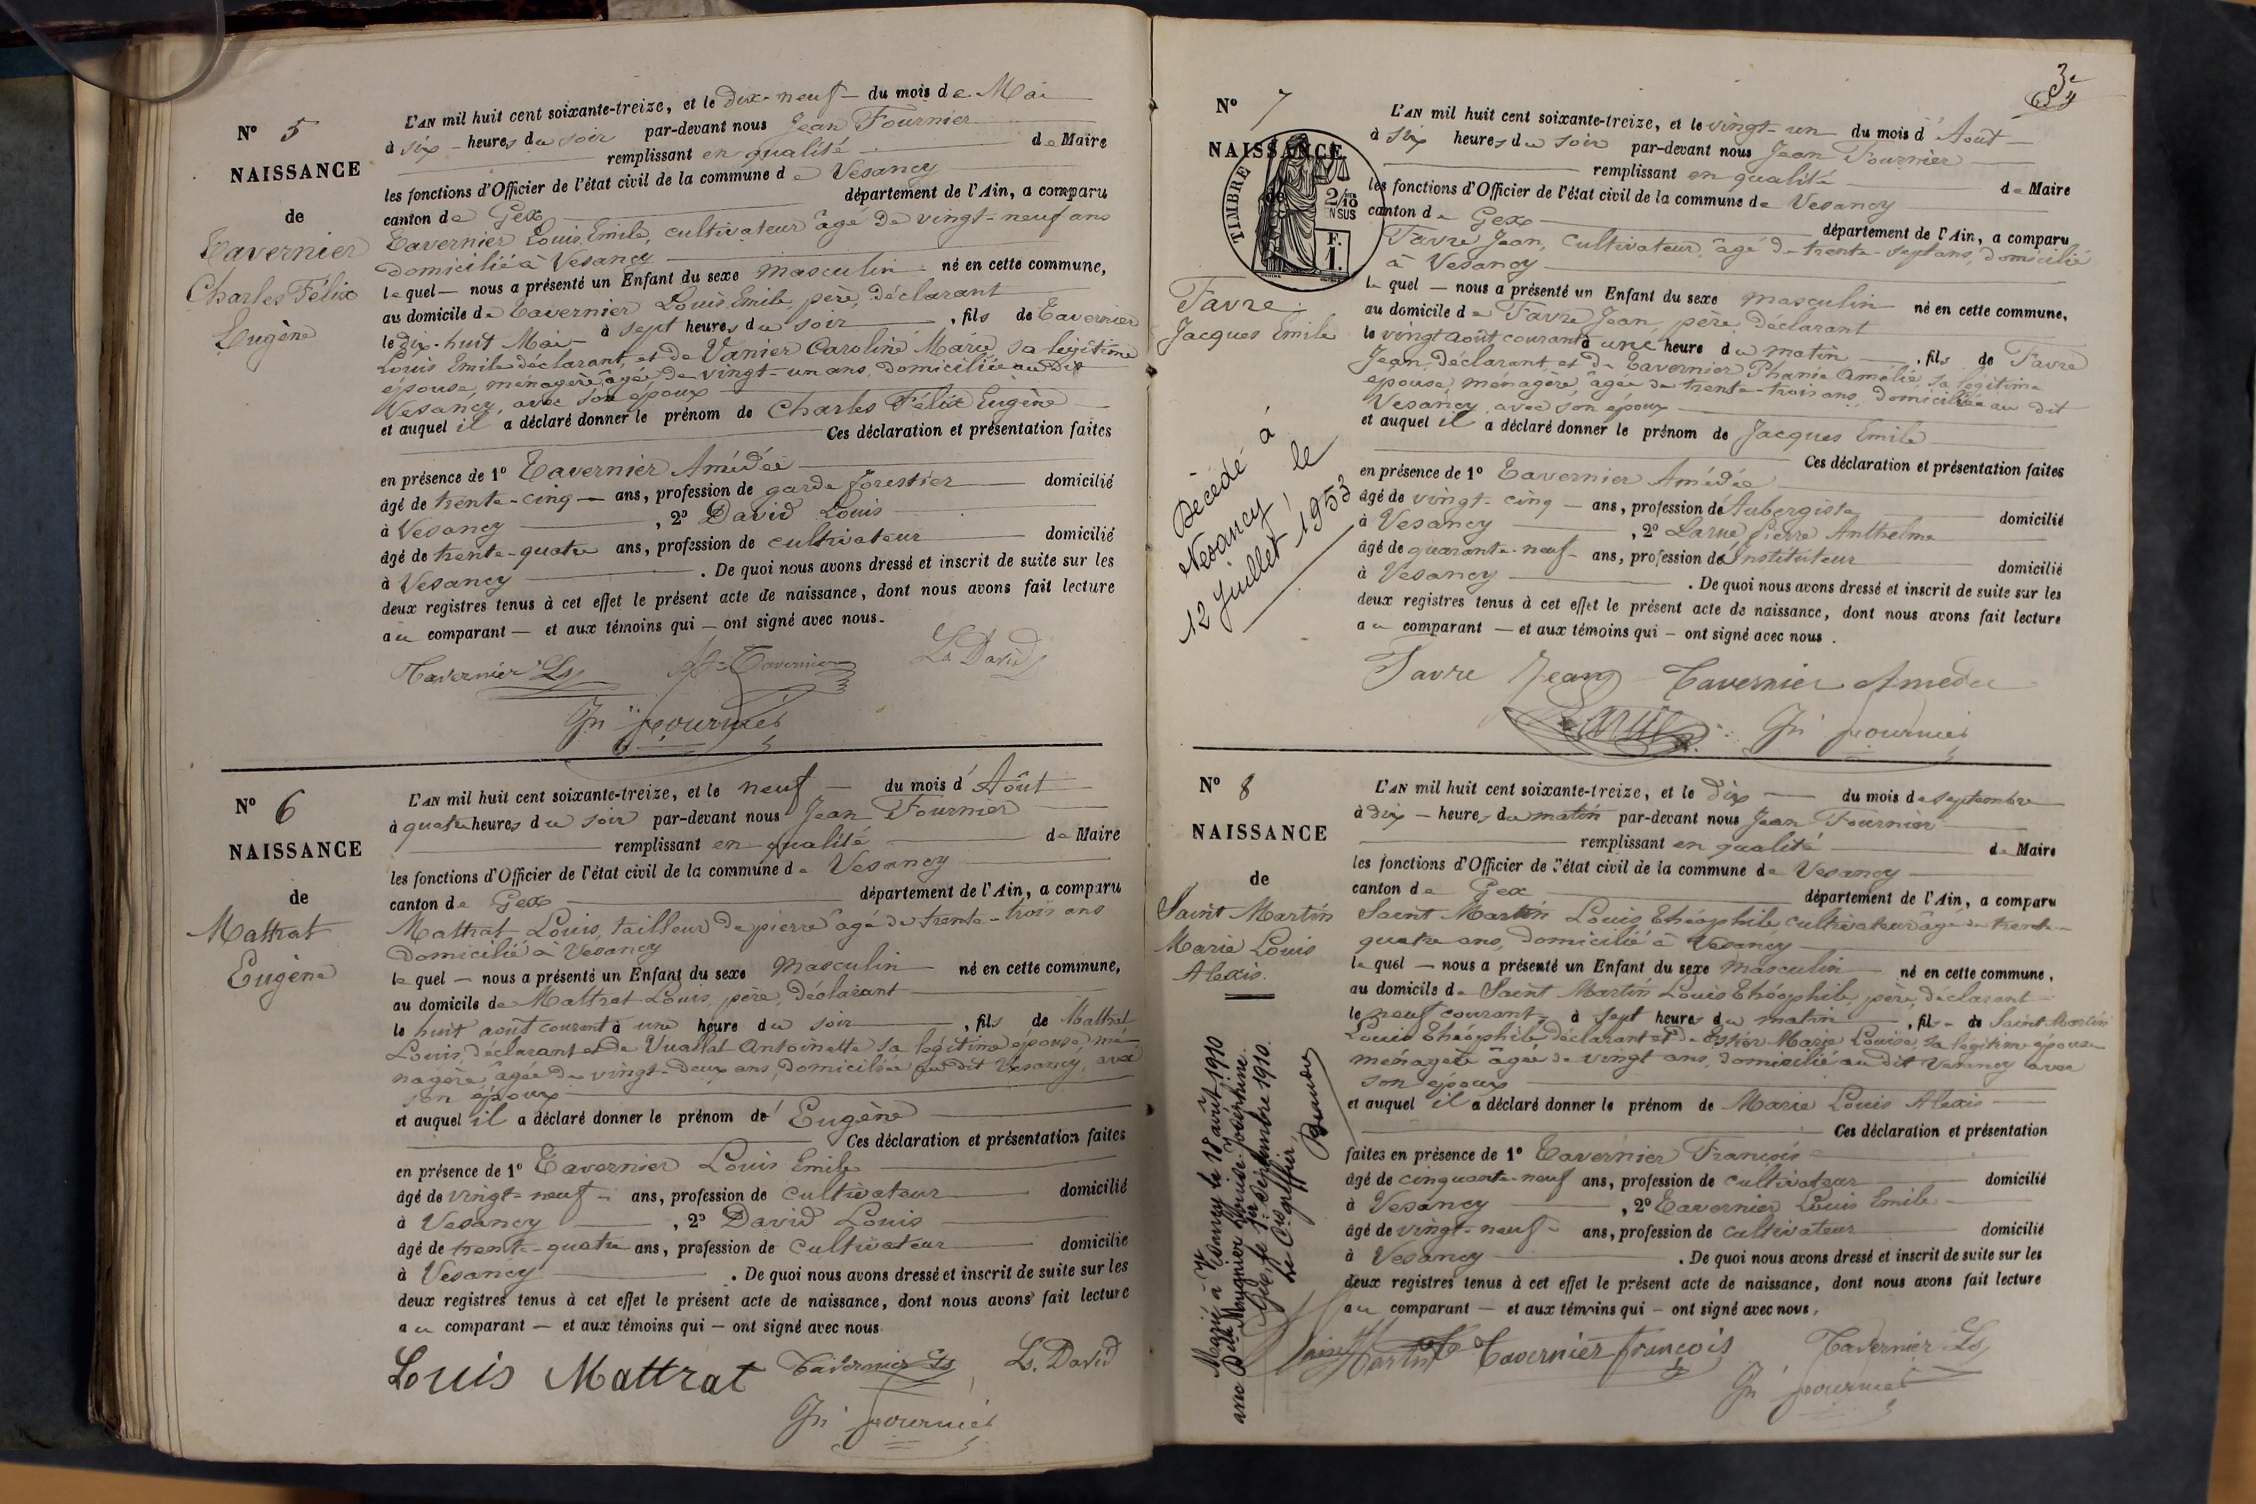 N° 5
NAISSANCE
de
Tavernier
Charles Félix
Eugène
L'AN mil huit cent soixante-treize, et le dix-neuf du mois de Mai
à six heures du soir par-devant nous Jean Fournier
remplissant en qualité de Maire
les fonctions d'Officier de l'état civil de la commune de Vesancy
canton de Gex département de l'Ain, a comparu
Tavernier Louis Emile, cultivateur âgé de vingt-neuf ans
domicilié à Vesancy
lequel — nous a présenté un Enfant du sexe masculin né en cette commune,
au domicile de Tavernier Louis Emile, père, déclarant
le dix-huit Mai à sept heures du soir, fils de Tavernier
Louis Emile déclarant, et de Vanier Caroline Marie, sa légitime
épouse, ménagère, âgée de vingt-un ans, domiciliée au dit
Vesancy, avec son époux
et auquel il a déclaré donner le prénom de Charles Félix Eugène
Ces déclaration et présentation faites
en présence de 1° Tavernier Amédée
âgé de trente-cinq — ans, profession de garde forestier domicilié
à Vesancy, 2° David Louis
âgé de trente-quatre ans, profession de cultivateur domicilié
à Vesancy. De quoi nous avons dressé et inscrit de suite sur les
deux registres tenus à cet effet le présent acte de naissance, dont nous avons fait lecture
au comparant — et aux témoins qui — ont signé avec nous.
Tavernier Ls Tavernier Ls David
Jn fournier
N° 6
NAISSANCE
de
Mattrat
Eugène
L'AN mil huit cent soixante-treize, et le neuf — du mois d'Août
à quatre heures du soir par-devant nous Jean Fournier
remplissant en qualité de Maire
les fonctions d'Officier de l'état civil de la commune de Vesancy
canton de Gex département de l'Ain, a comparu
Mattrat Louis, tailleur de pierre âgé de trente-trois ans
domicilié à Vesancy
lequel — nous a présenté un Enfant du sexe masculin né en cette commune,
au domicile de Mattrat Louis, père, déclarant
le huit août courant à une heure du soir, fils de Mattrat
Louis, déclarant et de Vuaillat Antoinette sa légitime épouse, mé-
nagère, âgée de vingt-deux ans, domiciliée au dit Vesancy, avec
son époux
et auquel il a déclaré donner le prénom de Eugène
Ces déclaration et présentation faites
en présence de 1° Tavernier Louis Emile
âgé de vingt-neuf — ans, profession de cultivateur domicilié
à Vesancy, 2° David Louis
âgé de trente-quatre ans, profession de cultivateur domicilié
à Vesancy. De quoi nous avons dressé et inscrit de suite sur les
deux registres tenus à cet effet le présent acte de naissance, dont nous avons fait lecture
au comparant — et aux témoins qui — ont signé avec nous
Louis Mattrat Tavernier Ls Ls. David
Jn fournier
3e
N° 7
NAISSANCE
de
TIMBRE
2/10
EN SUS
F.
1.
Favre
Jacques Emile
Décédé à
Vesancy, le
12 Juillet 1953
L'AN mil huit cent soixante-treize, et le vingt-un du mois d'Août
à six heures du soir par-devant nous Jean Fournier
remplissant en qualité de Maire
les fonctions d'Officier de l'état civil de la commune de Vesancy
canton de Gex département de l'Ain, a comparu
Favre Jean, cultivateur, âgé de trente-sept ans, domicilié
à Vesancy
lequel — nous a présenté un Enfant du sexe masculin né en cette commune,
au domicile de Favre Jean, père, déclarant
le vingt août courant à une heure du matin, fils de Favre
Jean, déclarant et de Tavernier Phanie Amélie, sa légitime
épouse, ménagère, âgée de trente-trois ans, domiciliée au dit
Vesancy, avec son époux
et auquel il a déclaré donner le prénom de Jacques Emile
Ces déclaration et présentation faites
en présence de 1° Tavernier Amédée
âgé de vingt-cinq — ans, profession d'Aubergiste domicilié
à Vesancy, 2° Larue Pierre Anthelme
âgé de quarante-neuf — ans, profession d'Instituteur domicilié
à Vesancy. De quoi nous avons dressé et inscrit de suite sur les
deux registres tenus à cet effet le présent acte de naissance, dont nous avons fait lecture
au comparant — et aux témoins qui — ont signé avec nous.
Favre Jean Tavernier Amédée
Larue Jn fournier
N° 8
NAISSANCE
de
Saint Martin
Marie Louis
Alexis.
Marié à Vesancy le 18 août 1910
avec Delle Mugnier Louise Joséphine.
Gex, le 1er Septembre 1910.
Le Cis greffier,
L'AN mil huit cent soixante-treize, et le dix — du mois de septembre
à dix — heures du matin par-devant nous Jean Fournier
remplissant en qualité de Maire
les fonctions d'Officier de l'état civil de la commune de Vesancy
canton de Gex département de l'Ain, a comparu
Saint Martin Louis Théophile, cultivateur âgé de trente-
quatre ans, domicilié à Vesancy
lequel — nous a présenté un Enfant du sexe masculin né en cette commune,
au domicile de Saint Martin Louis Théophile, père, déclarant
le neuf courant à sept heures du matin, fils de Saint Martin
Louis Théophile, déclarant et de Marie Louise, sa légitime épouse
ménagère âgée de vingt ans, domicilié au dit Vesancy avec
son époux
et auquel il a déclaré donner le prénom de Marie Louis Alexis
Ces déclaration et présentation
faites en présence de 1° Tavernier François
âgé de cinquante-neuf ans, profession de cultivateur domicilié
à Vesancy, 2° Tavernier Louis Emile
âgé de vingt-neuf — ans, profession de cultivateur domicilié
à Vesancy. De quoi nous avons dressé et inscrit de suite sur les
deux registres tenus à cet effet le présent acte de naissance, dont nous avons fait lecture
au comparant — et aux témoins qui — ont signé avec nous.
Martin Tavernier françois Tavernier Ls
Jn fournier